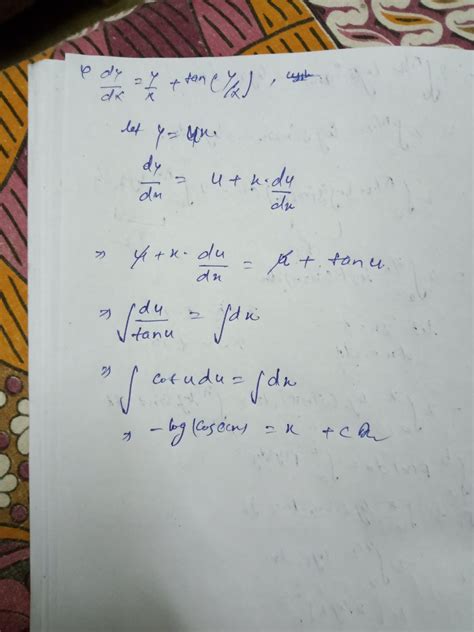 φ dy/dx = y/x + tan(y/x),
let y = ux.
dy/dx = u + x·du/dx
⇒ u + x·du/dx = u + tanu
⇒ ∫du/tanu = ∫dx
⇒ ∫cotudu = ∫dx
⇒ -log(cosecx) = x + c